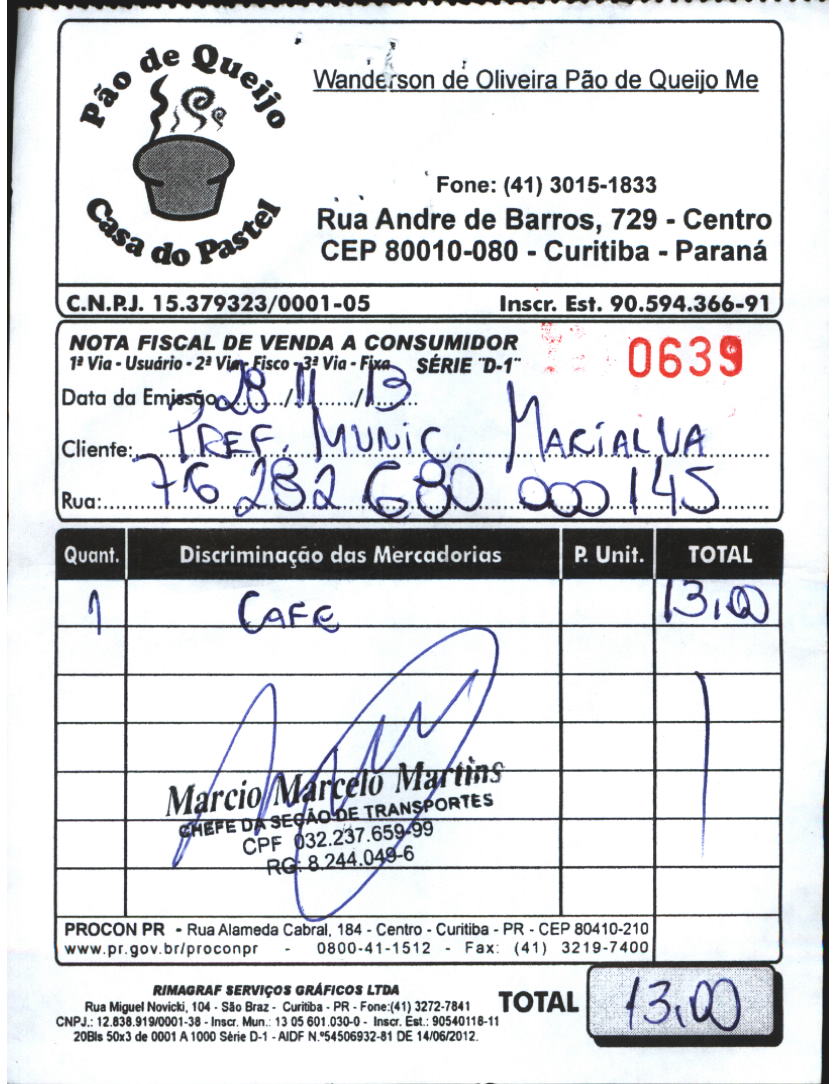 Pão de Queijo
Casa do Pastel
Wanderson de Oliveira Pão de Queijo Me
Fone: (41) 3015-1833
Rua Andre de Barros, 729 - Centro
CEP 80010-080 - Curitiba - Paraná
C.N.P.J. 15.379323/0001-05 Inscr. Est. 90.594.366-91
NOTA FISCAL DE VENDA A CONSUMIDOR
1ª Via - Usuário - 2ª Via - Fisco - 3ª Via - Fixa SÉRIE "D-1" 0639
Data da Emissão 28/11/13
Cliente: PREF. MUNIC. MARIALVA
Rua: 76 282 680 000 145
Quant. Discriminação das Mercadorias P. Unit. TOTAL
1 CAFE 13,00
Marcio Marcelo Martins
CHEFE DA SEÇÃO DE TRANSPORTES
CPF 032.237.659-99
RG: 8.244.049-6
PROCON PR - Rua Alameda Cabral, 184 - Centro - Curitiba - PR - CEP 80410-210
www.pr.gov.br/proconpr - 0800-41-1512 - Fax: (41) 3219-7400
RIMAGRAF SERVIÇOS GRÁFICOS LTDA
Rua Miguel Novicki, 104 - São Braz - Curitiba - PR - Fone:(41) 3272-7841
CNPJ.: 12.838.919/0001-38 - Inscr. Mun.: 13 05 601.030-0 - Inscr. Est.: 90540118-11
20Bls 50x3 de 0001 A 1000 Série D-1 - AIDF N.º54506932-81 DE 14/06/2012.
TOTAL 13,00